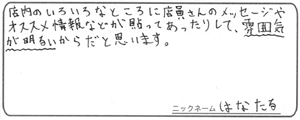 店内のいろいろなところに店員さんのメッセージや
オススメ情報などが貼ってあったりして、雰囲気
が明るいからだと思います。
ニックネーム はなたる